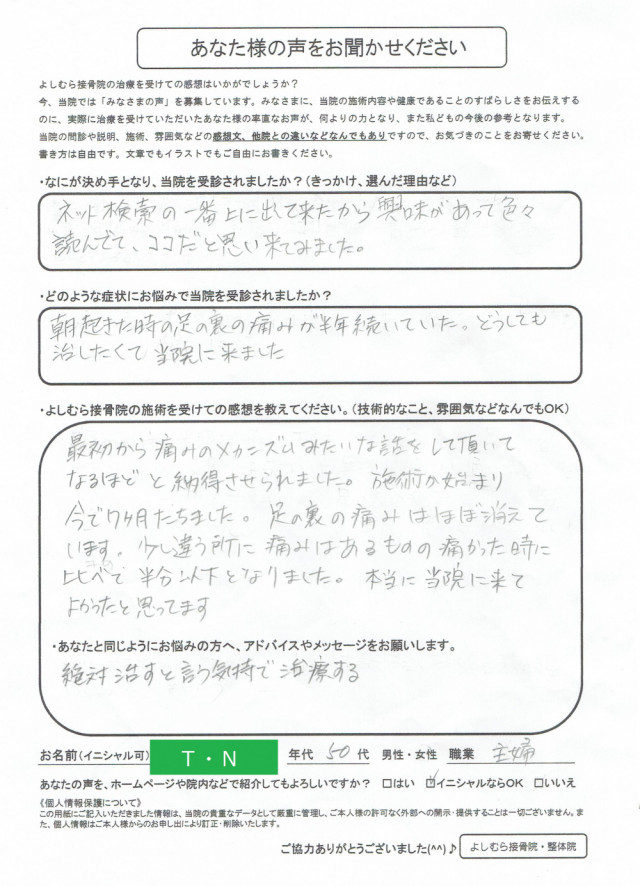 あなた様の声をお聞かせください
よしむら接骨院の治療を受けての感想はいかがでしょうか？
今、当院では「みなさまの声」を募集しています。みなさまに、当院の施術内容や健康であることのすばらしさをお伝えする
のに、実際に治療を受けていただいたあなた様の率直なお声が、何よりの力となり、また私どもの今後の参考となります。
当院の問診や説明、施術、雰囲気などの感想文、他院との違いなどなんでもありですので、お気づきのことをお寄せください。
書き方は自由です。文章でもイラストでもご自由にお書きください。
・なにが決め手となり、当院を受診されましたか？（きっかけ、選んだ理由など）
ネット検索の一番上に出て来たから興味があって色々
読んでて、ココだと思い来てみました。
・どのような症状にお悩みで当院を受診されましたか？
朝起きた時の足の裏の痛みが半年続いていた。どうしても
治したくて当院に来ました
・よしむら接骨院の施術を受けての感想を教えてください。（技術的なこと、雰囲気などなんでもOK）
最初から痛みのメカニズムみたいな話をして頂いて
なるほどと納得させられました。施術が始まり
今で7ヶ月たちました。足の裏の痛みはほぼ消えて
います。少し違う所に痛みはあるものの痛かった時に
比べて半分以下となりました。本当に当院に来て
よかったと思ってます
・あなたと同じようにお悩みの方へ、アドバイスやメッセージをお願いします。
絶対治すと言う気持で治療する
お名前（イニシャル可） T・N 年代 50代 男性・女性 職業 主婦
あなたの声を、ホームページや院内などで紹介してもよろしいですか？ □はい ☑イニシャルならOK □いいえ
《個人情報保護について》
この用紙にご記入いただきました情報は、当院の貴重なデータとして厳重に管理し、ご本人様の許可なく外部への開示・提供することは一切ございません。ま
た、個人情報はご本人様からのお申し出により訂正・削除いたします。
ご協力ありがとうございました(^^)♪ よしむら接骨院・整体院